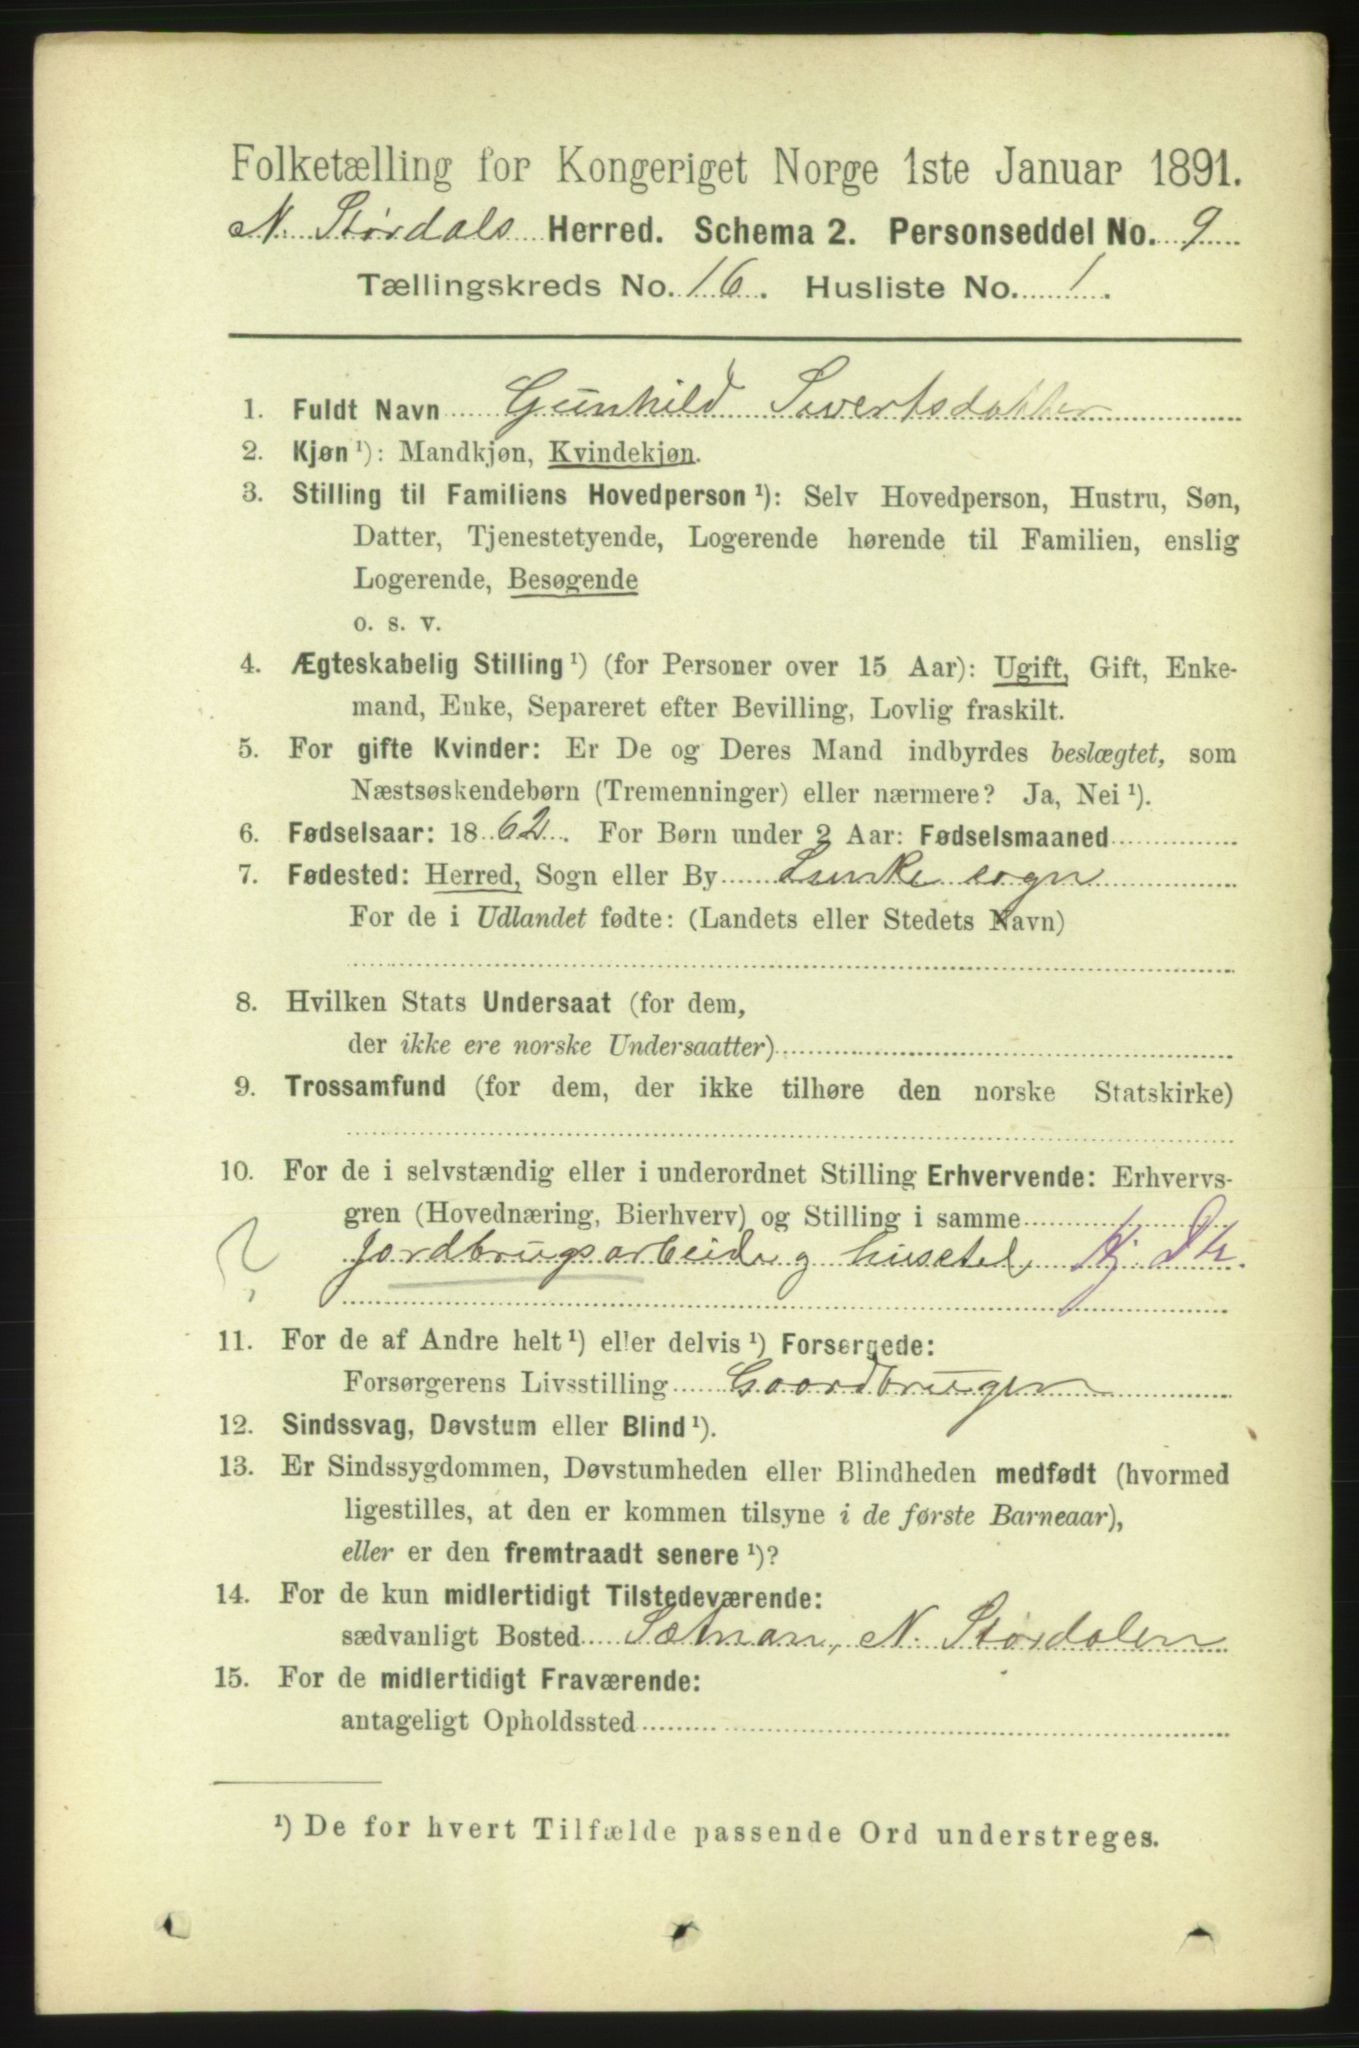 Folketælling for Kongeriget Norge 1ste Januar 1891.
N. Størdals Herred. Schema 2. Personseddel No. 9
Tællingskreds No. 16. Husliste No. 1.
1. Fuldt Navn Gunhild Sivertsdatter
2. Kjøn ¹): Mandkjøn, Kvindekjøn.
3. Stilling til Familiens Hovedperson ¹): Selv Hovedperson, Hustru, Søn,
Datter, Tjenestetyende, Logerende hørende til Familien, enslig
Logerende, Besøgende
o. s. v.
4. Ægteskabelig Stilling ¹) (for Personer over 15 Aar): Ugift, Gift, Enke-
mand, Enke, Separeret efter Bevilling, Lovlig fraskilt.
5. For gifte Kvinder: Er De og Deres Mand indbyrdes beslægtet, som
Næstsøskendebørn (Tremenninger) eller nærmere? Ja, Nei ¹).
6. Fødselsaar: 1862. For Børn under 2 Aar: Fødselsmaaned
7. Fødested: Herred, Sogn eller By sogn
For de i Udlandet fødte: (Landets eller Stedets Navn)
8. Hvilken Stats Undersaat (for dem,
der ikke ere norske Undersaatter)
9. Trossamfund (for dem, der ikke tilhøre den norske Statskirke)
10. For de i selvstændig eller i underordnet Stilling Erhvervende: Erhvervs-
gren (Hovednæring, Bierhverv) og Stilling i samme
? Jordbrugsarbeide og husstel
11. For de af Andre helt ¹) eller delvis ¹) Forsørgede:
Forsørgerens Livsstilling Gaardbruger
12. Sindssvag, Døvstum eller Blind ¹).
13. Er Sindssygdommen, Døvstumheden eller Blindheden medfødt (hvormed
ligestilles, at den er kommen tilsyne i de første Barneaar),
eller er den fremtraadt senere ¹)?
14. For de kun midlertidigt Tilstedeværende:
sædvanligt Bosted Sætnan, N. Størdalen
15. For de midlertidigt Fraværende:
antageligt Opholdssted
¹) De for hvert Tilfælde passende Ord understreges.